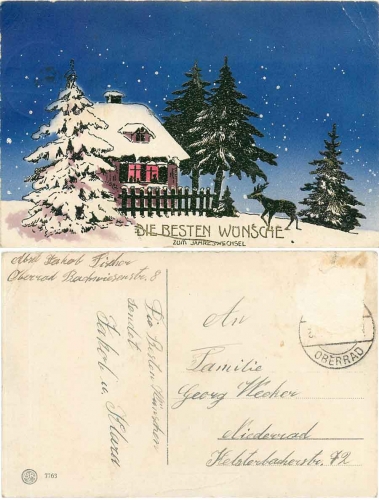 DIE BESTEN WÜNSCHE
ZUM JAHRESWECHSEL
Abs. Jakob Fischer
Oberrad Bachwiesenstr. 8
Die Besten Wünschen
sendet
Jakob u. Klara
An
Familie
Georg Wecker
Niederrad
Kelsterbacherstr. 72
OBERRAD
7703